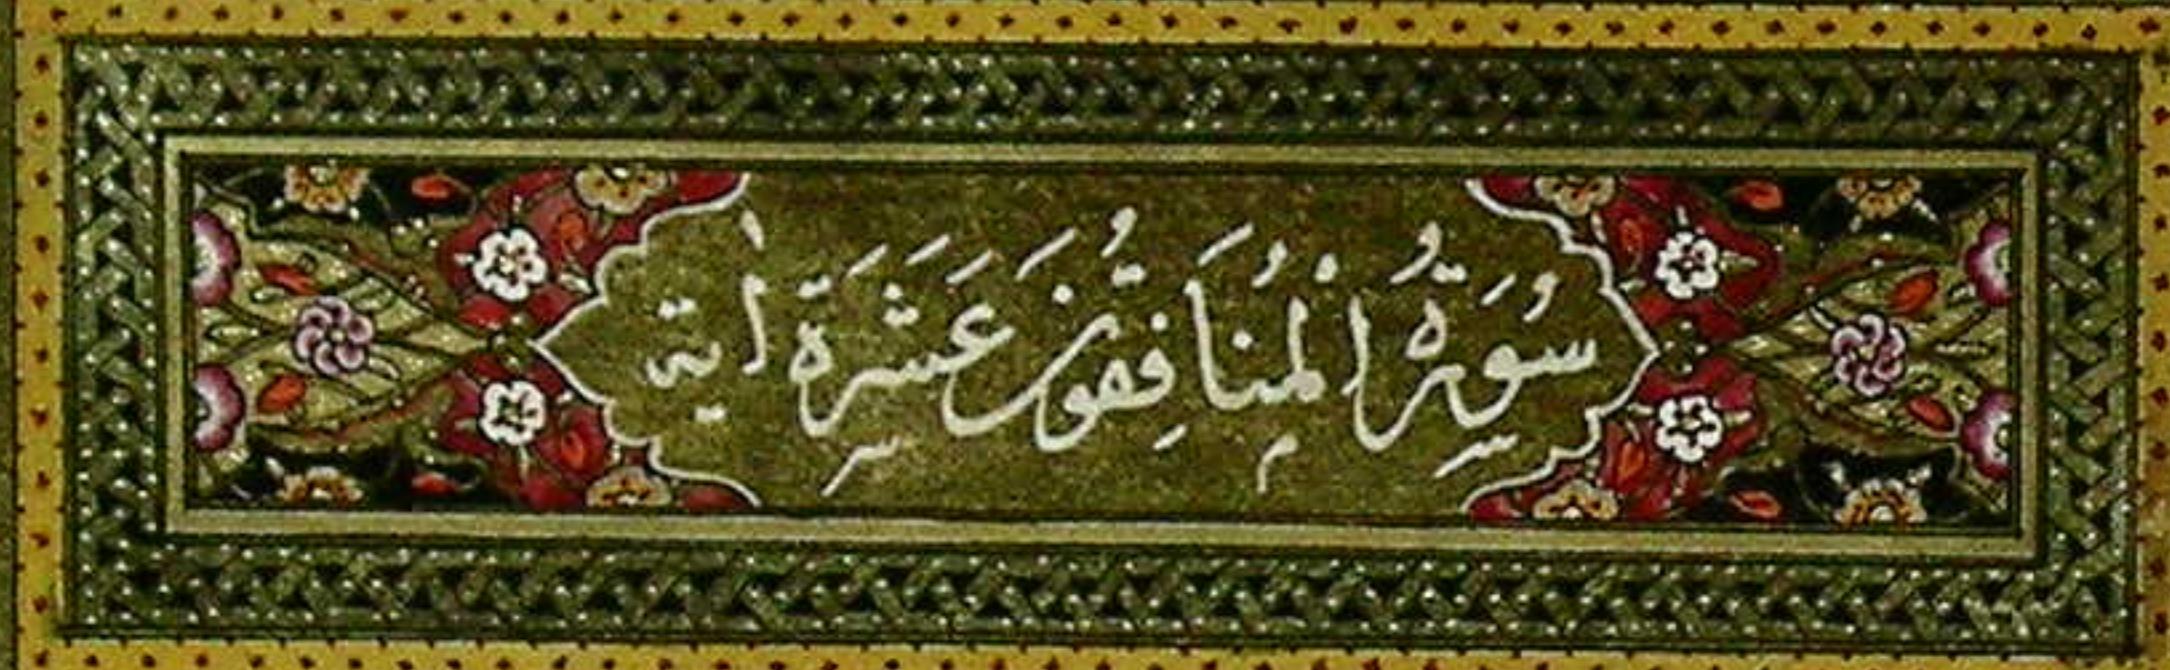 سُورَةُ الْمُنَافِقُونَ عَشَرَةَ اٰيَة